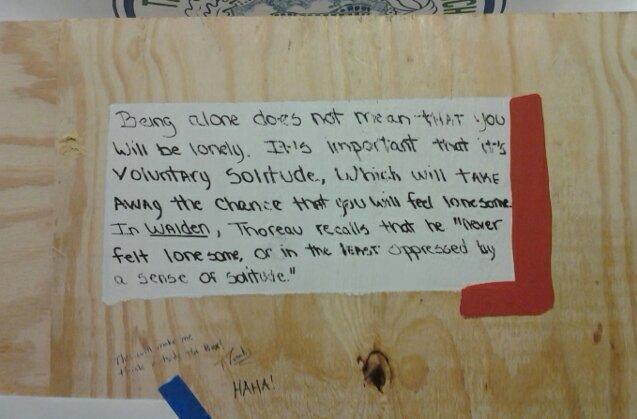 Being alone does not mean THAT you
will be lonely. It is important that it's
Voluntary Solitude, Which will TAKE
AWAy the Chance that you will feel lonesome.
In WALDEN, Thoreau recalls that he "never
felt lonesome, or in the LEAST oppressed by
a sense of solitude."
This will make me
think outside the Box!
HAHA!